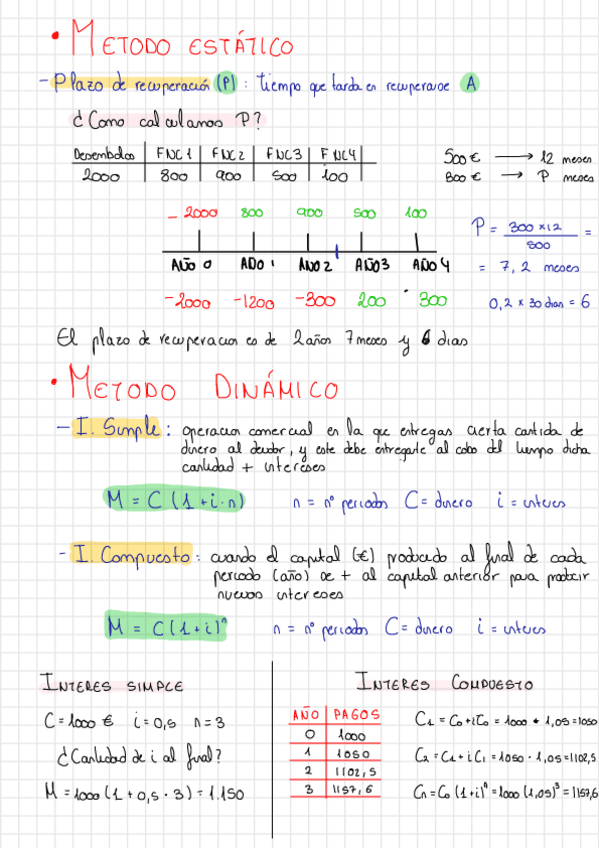 • METODO ESTÁTICO
- Plazo de recuperación (P) : tiempo que tarda en recuperarse A
¿Como calculamos P?
Desembolso | FNC1 | FNC2 | FNC3 | FNC4
2000 | 800 | 900 | 500 | 100
500€ → 12 meses
300€ → P meses
- 2000 800 900 500 100
AÑO 0 AÑO 1 AÑO 2 AÑO 3 AÑO 4
-2000 -1200 -300 200 300
P = 300 x 12 / 500 =
= 7,2 meses
0,2 x 30 dias = 6
El plazo de recuperacion es de 2 años 7 meses y 6 dias
• METODO DINÁMICO
- I. Simple : operacion comercial en la que entregas cierta cantida de
dinero al deudor, y este debe entregarte al cabo del tiempo dicha
cantidad + intereses
M = C (1 + i · n) n = nº periodos C = dinero i = interes
- I. Compuesto : cuando el capital (€) producido al final de cada
periodo (año) se + al capital anterior para producir
nuevos intereses
M = C (1 + i)ⁿ n = nº periodos C = dinero i = interes
INTERES SIMPLE
C = 1000 € i = 0,5 n = 3
¿Cantidad de i al final?
M = 1000 (1 + 0,5 · 3) = 1.150
INTERES COMPUESTO
AÑO | PAGOS
0 | 1000
1 | 1050
2 | 1102,5
3 | 1157,6
C₁ = C₀ + iC₀ = 1000 * 1,05 = 1050
C₂ = C₁ + iC₁ = 1050 · 1,05 = 1102,5
Cn = C₀ (1 + i)ⁿ = 1000 (1,05)³ = 1157,6